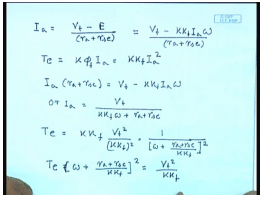 Ia = Vt - E / (ra + rse) = Vt - KKf Ia ω / (ra + rse)
Te = K φf Ia = KKf Ia²
Ia (ra + rse) = Vt - KKf Ia ω
or Ia = Vt / KKf ω + ra + rse
Te = KKf Vt² / (KKf)² · 1 / [ω + ra + rse / KKf]²
Te [ω + ra + rse / KKf]² = Vt² / KKf